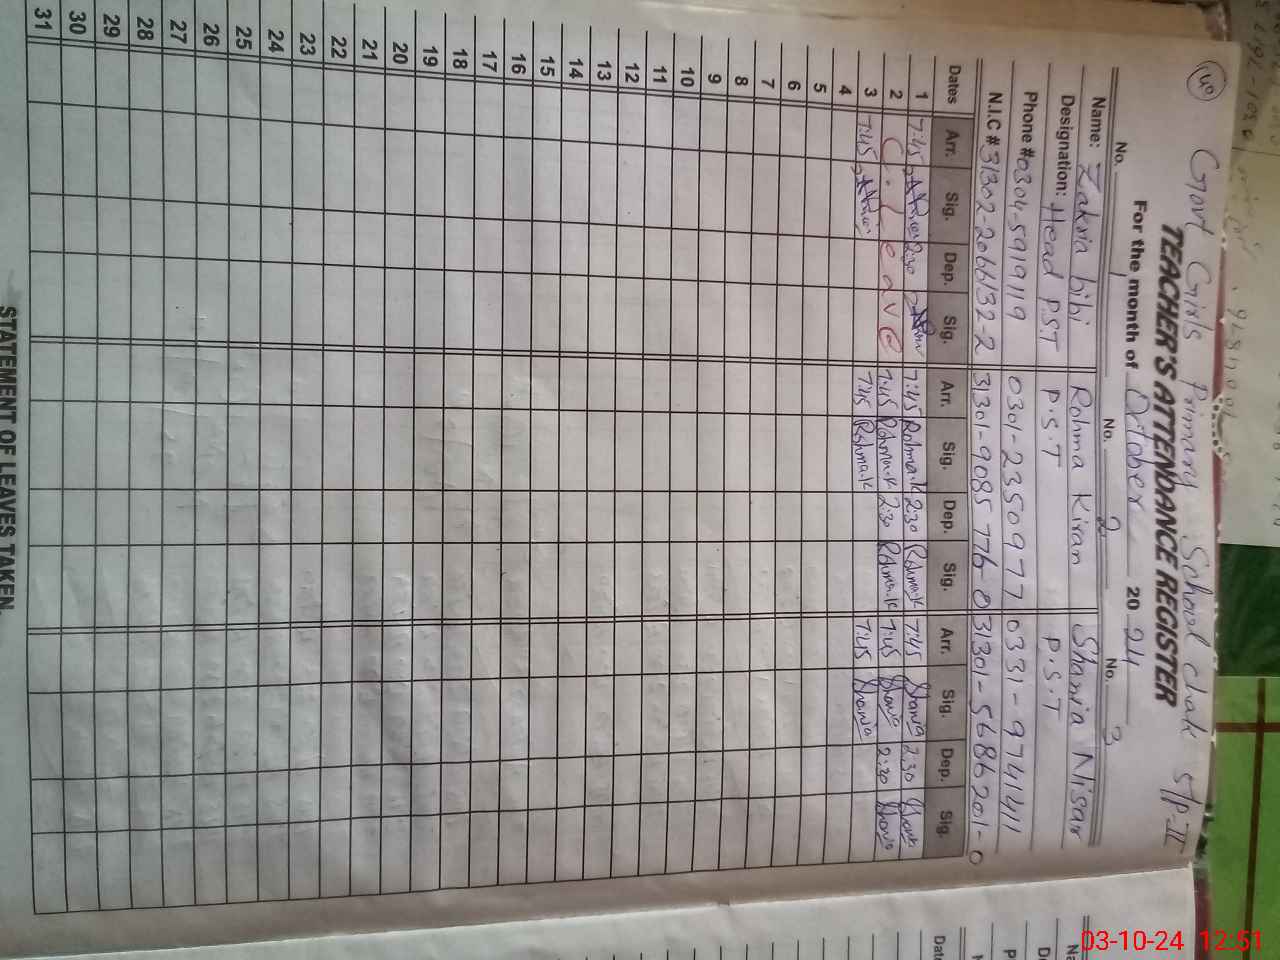 40
Govt Girls Primary School Chak 5/P-II
TEACHER'S ATTENDANCE REGISTER
For the month of October 2024
No. 1 No. 2 No. 3
Name: Zakria bibi Rohma Kiran Shania Nisar
Designation: Head P.S.T P.S.T P.S.T
Phone # 0304-5919119 0301-2350977 0331-9741411
N.I.C # 31302-2066132-2 31301-9085776-0 31301-5686201-0
Dates Arr. Sig. Dep. Sig. Arr. Sig. Dep. Sig. Arr. Sig. Dep. Sig.
1 7:45 2:30 7:45 Rohma.k 2:30 Rohma.k 7:45 Shania 2:30 Shania
2 C. Leave 7:45 Rohma.k 2:30 Rohma.k 7:45 Shania 2:30 Shania
3 7:45 7:45 Rohma.k 7:45 Shania
4
5
6
7
8
9
10
11
12
13
14
15
16
17
18
19
20
21
22
23
24
25
26
27
28
29
30
31
STATEMENT OF LEAVES TAKEN
Dates
03-10-24 12:51